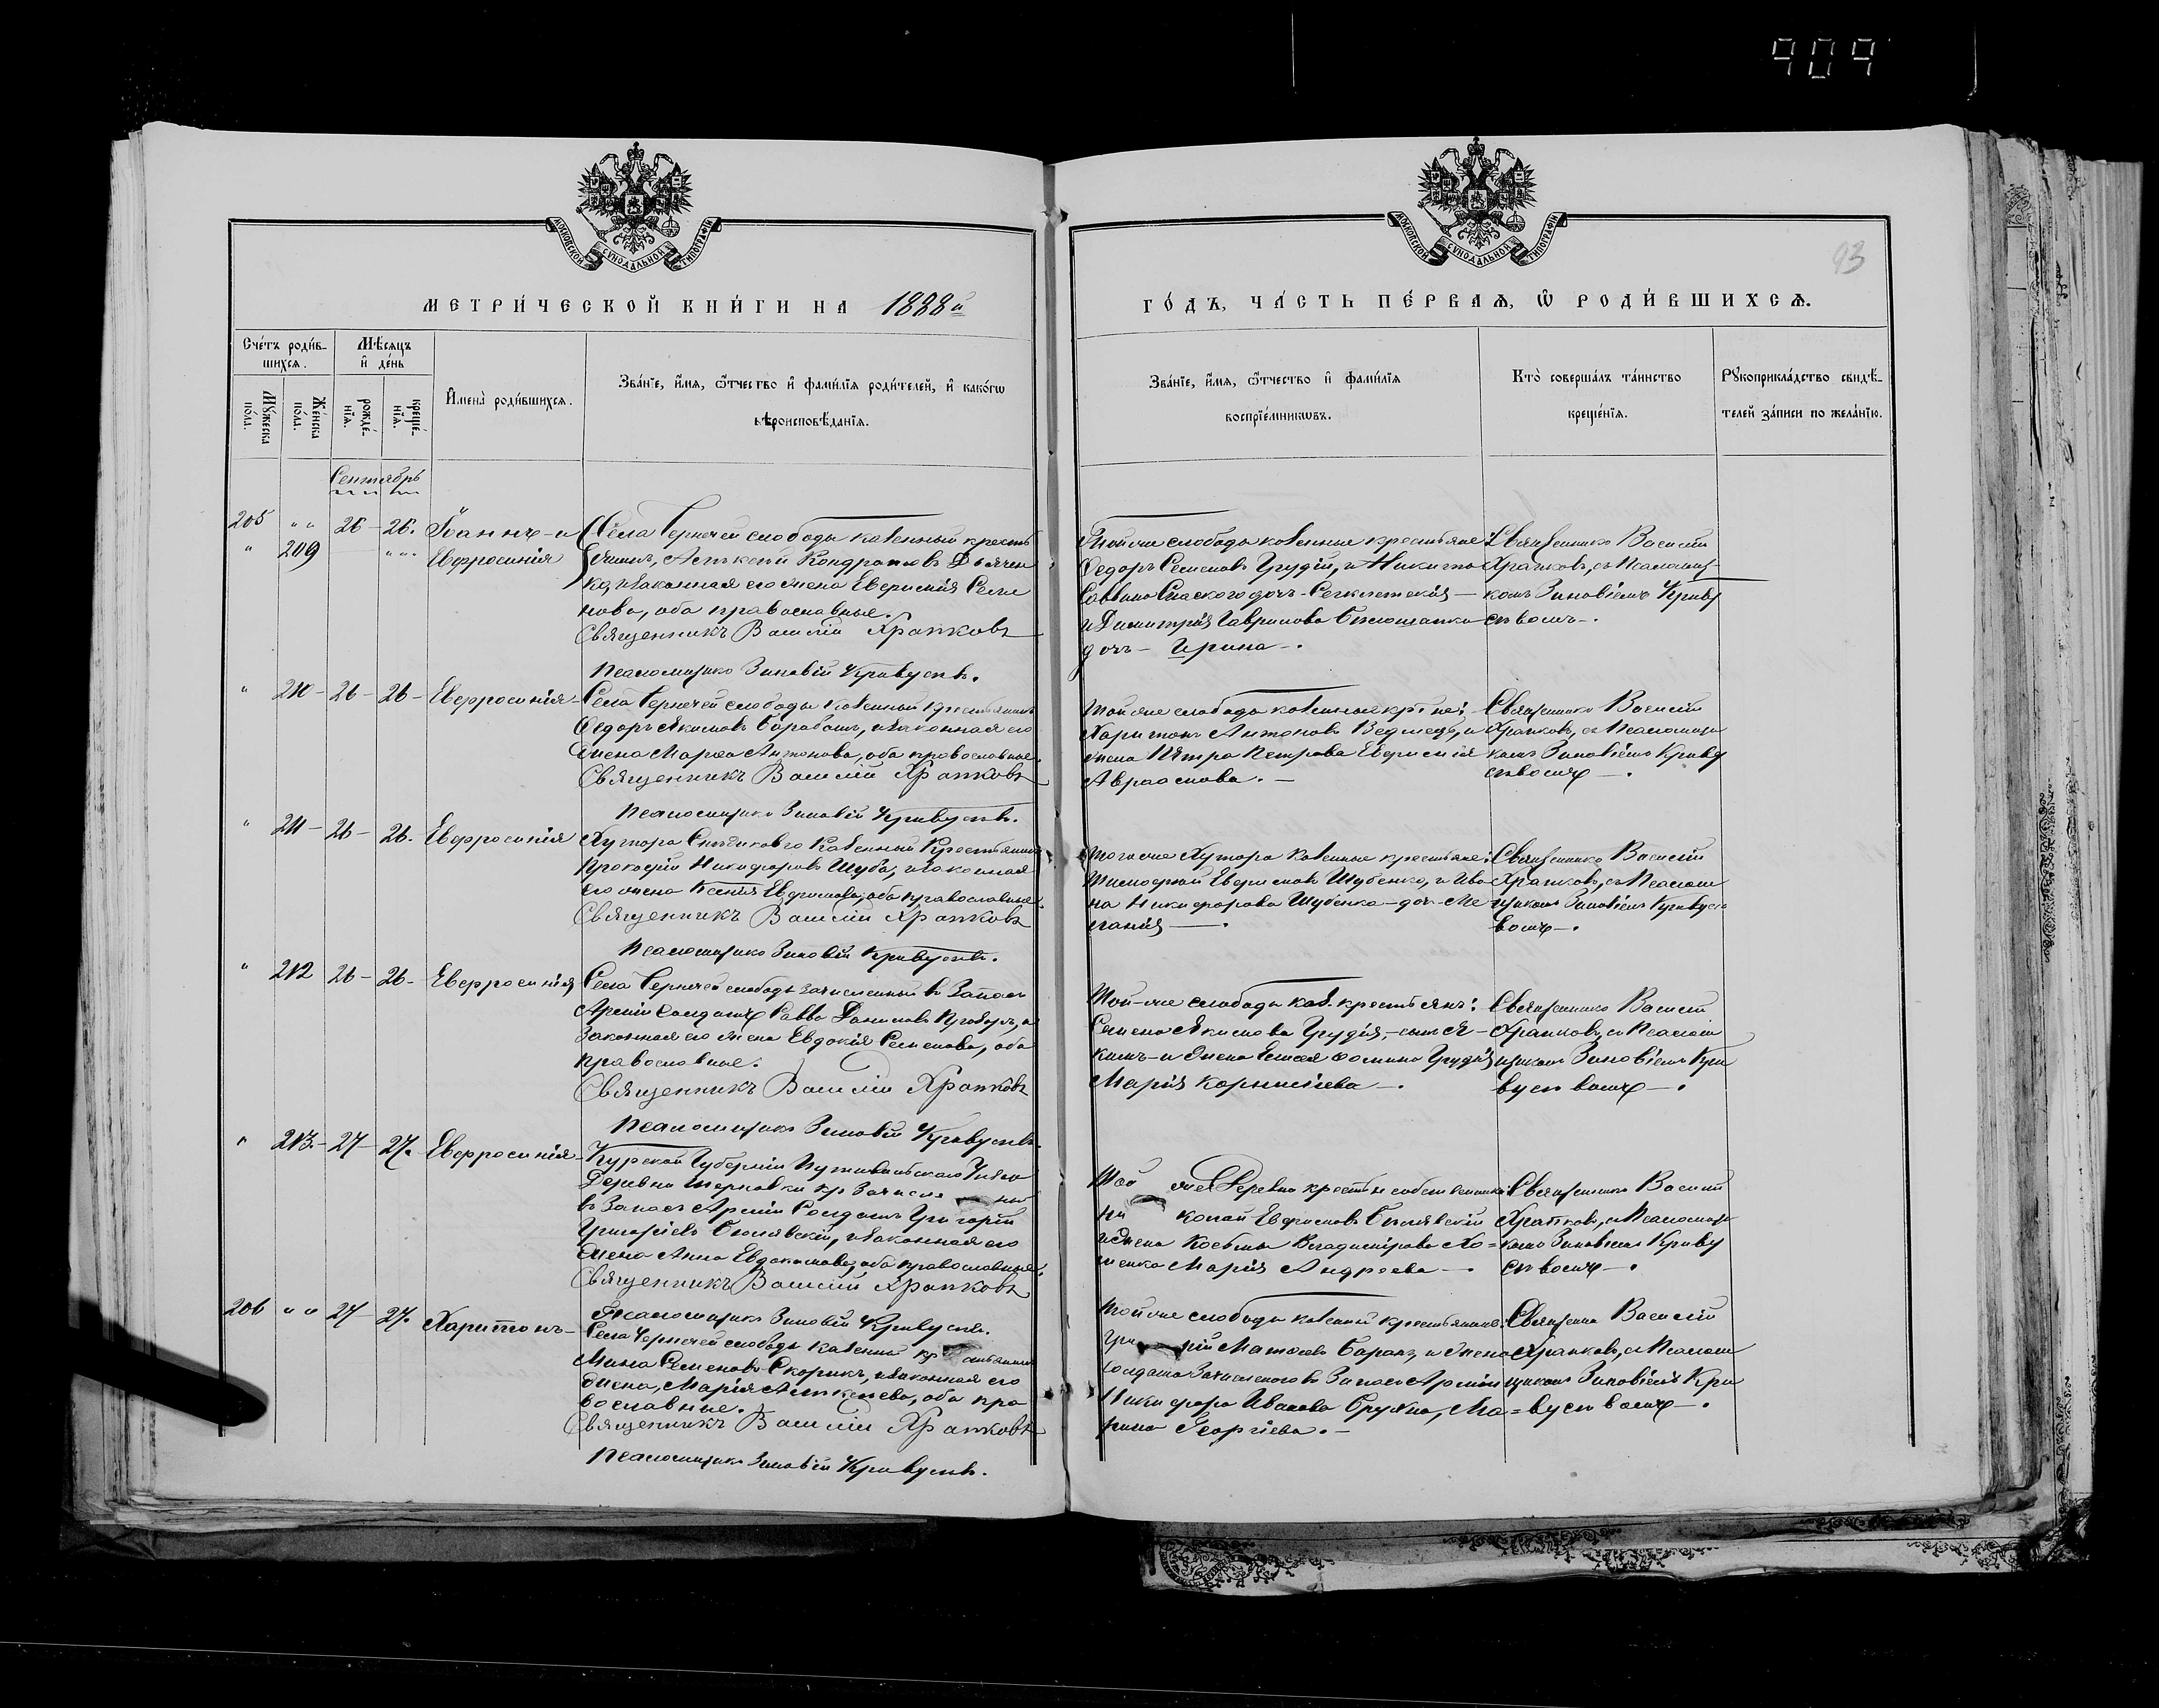 909
93
МОСКОВСКОЙ СѴНОДАЛЬНОЙ ТИПОГРАФІИ
МОСКОВСКОЙ СѴНОДАЛЬНОЙ ТИПОГРАФІИ
МЕТРИ́ЧЕСКОЙ КНИ́ГИ НА 1888й
ГО́ДЪ, ЧА́СТЬ ПЕ́РВАѦ, Ѡ РОДИ́ВШИХСѦ.
Сче́тъ роди́в-
шихсѧ.
Мꙋ́жеска
по́ла.
Же́нска
по́ла.
Мѣ́сѧцъ
и҆ де́нь
рожде́-
нїѧ.
креще́-
нїѧ.
И҆мена̀ роди́вшихсѧ.
Зва́нїе, и҆́мѧ, ѻ҆́тчество и҆ фами́лїѧ роди́телей, и҆ како́гѡ
вѣроисповѣ́данїѧ.
Зва́нїе, и҆́мѧ, ѻ҆́тчество и҆ фами́лїѧ
воспрїе́мникѡвъ.
Кто̀ соверша́лъ та́инство
креще́нїѧ.
Рꙋкоприкла́дство свидѣ́-
телей за́писи по жела́нїю.
Сентябрь
205 " " 26 - 26. Іоаннъ - и
" 209 " " " Евфросинія
Села Чернечей слободы казенный кресть
янинъ, Алексѣй Кондратовъ Дьячен
ко, и законная его жена Евфимія Семе
нова, оба православные.
Священникъ Василій Храпковъ
Псаломщикъ Зиновій Кривусевъ.
Той же слободы казенные крестьяне:
Федоръ Семеновъ Грудій, и Никиты
дочь -
и Димитрія Гаврилова
дочь - Ирина -.
Священникъ Василій
Храпковъ, съ Псаломщи-
комъ Зиновіемъ Криву
севымъ -.
" 210 - 26 - 26 - Евфросинія -
Села Чернечей слободы казенный крестьянинъ
Федоръ Якимовъ Барабашъ, и законная его
жена Марѳа Антонова, оба православные.
Священникъ Василій Храпковъ
Псаломщикъ Зиновій Кривусевъ.
Той же слободы казенные кр-не:
Харитонъ Антоновъ Ведмедь, и
жена Петра Петрова Евфимія
Авраамова. -
Священникъ Василій
Храпковъ, съ Псаломщи
комъ Зиновіемъ Криву
севымъ -.
" 211 - 26 - 26. Евфросинія
Хутора казенный Крестьянинъ
Прокофій Никифоровъ Шуба, и законная
его жена Ксенія Евфимова, оба православные.
Священникъ Василій Храпковъ
Псаломщикъ Зиновій Кривусевъ.
Того же Хутора казенные крестьяне:
Тимофей Евфимовъ Шубенко, и Ива
на Никифорова Шубенка - доч - Ме
ланія -.
Священникъ Василій
Храпковъ, съ Псалом
щикомъ Зиновіемъ Кривусе
вымъ -.
" 212 26 - 26 - Евфросинія
Села Чернечей слободы зачисленный въ Запасъ
Арміи Солдатъ Савва Даниловъ, и
Законная его жена Евдокія Семенова, оба
православные.
Священникъ Василій Храпковъ
Псаломщикъ Зиновій Кривусевъ.
Той-же слободы каз. крестьяне:
Семена Якимова Грудія, - сынъ Я-
кимъ - и жена Фомина Грудія
Марія Корнилієва -.
Священникъ Василій
Храпковъ, съ Псалом
щикомъ Зиновіемъ Кри
вусевымъ -.
" 213. - 27 - 27. Евфросинія -
Курской Губерніи Путивльскаго Уѣзда
Деревни
въ Запасъ Арміи Солдатъ Григорій
Григорієвъ Билявскій, и законная его
жена Анна Евдокимова, оба православные.
Священникъ Василій Храпковъ
Псаломщикъ Зиновій Кривусевъ.
Той же Деревни крест-не собственники:
Евфимовъ Билявскій
и жена Косьмы Владимірова Хо=
менка Марія Андреева -.
Священникъ Василій
Храпковъ, съ Псаломщи
комъ Зиновіемъ Криву
севымъ -.
206 " " 27 - 27. Харитонъ -
Села Чернечей слободы казенный кр стьянинъ
Мина Семеновъ Скорикъ, и законная его
жена, Марія Алексѣева, оба пра
вославные.
Священникъ Василій Храпковъ
Псаломщикъ Зиновій Кривусевъ.
Той же слободы казенный крестьянинъ:
Гри рій Матѳеевъ Баранъ, и жена
солдата Зачисленого въ Запасъ Арміи
Никифора Иванова, Ма=
рина Георгіева. -
Священни Василій
Храпковъ, съ Псалом
щикомъ Зиновіемъ Кри
вусевымъ -.